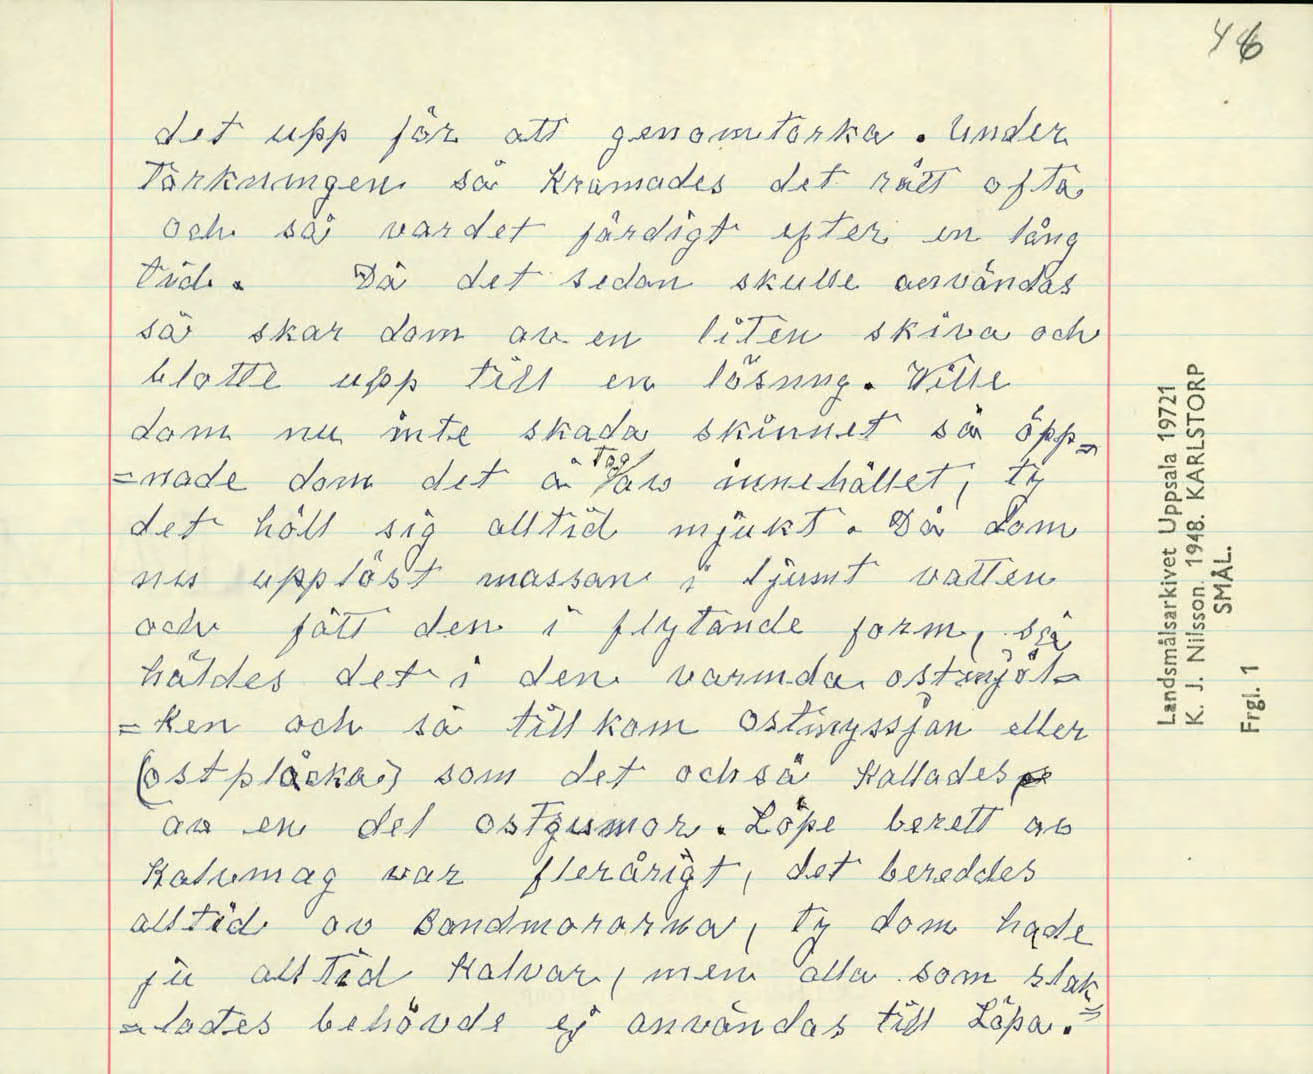 46
det upp för att genomtorka. Under
Torkningen så Kramades det rätt ofta
och så vardet färdigt efter en lång
tid. Då det sedan skulle användas
så skar dom av en liten skiva och
blotte upp till en lösning. Ville
dom nu inte skada skinnet så öpp=
=nade dom det å Tog av innehållet, ty
det höll sig alltid mjukt. Då dom
nu upplöst massan i ljumt vatten
och fått den i flytande form, så
häldes det i den varmda ostmjöl=
=ken och så tillkom ostmyssjan eller
(ostplåcka) som det också Kallades
av en del ostgumor. Löpe berett av
Kalvmag var flerårigt, det bereddes
alltid av Bondmorarna, ty dom hade
ju alltid Kalvar, men alla som slak=
=tades behövde ej användas till Löpa.
Landsmålsarkivet Uppsala 19721
K. J. Nilsson. 1948. KARLSTORP
SMÅL.
Frgl. 1